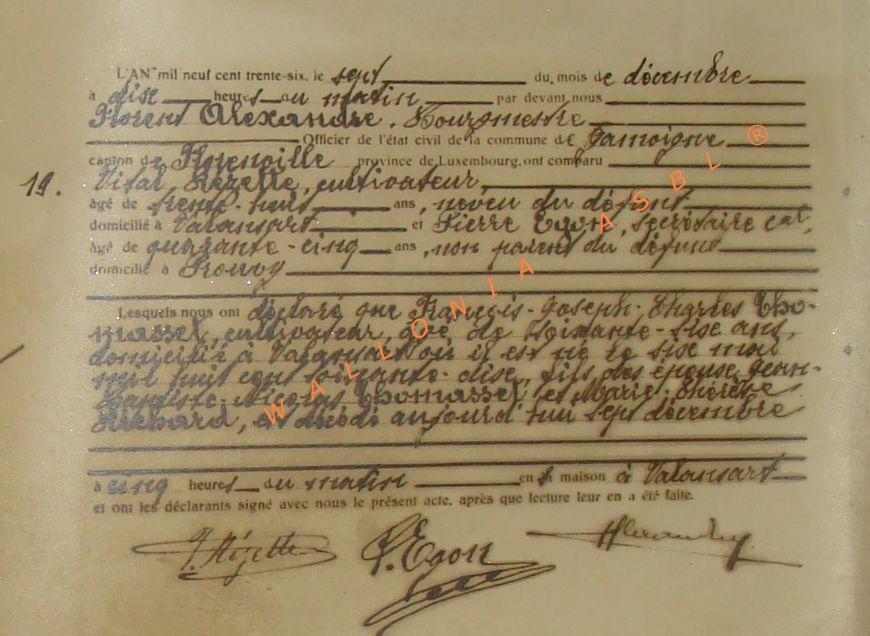 L'AN mil neuf cent trente-six, le sept du mois de décembre
à dise heures du matin par devant nous
Florent Alexandre, Bourgmestre
Officier de l'état civil de la commune de Jamoigne
canton de Florenville province de Luxembourg, ont comparu
19. Vital Hézelle, cultivateur,
âgé de trente-huit ans, neveu du défunt
domicilié à Valansart et Pierre Egon, secrétaire co,
âgé de quarante-cinq ans, non parent du défunt
domicilié à Prouvy
Lesquels nous ont déclaré que François-Joseph-Charles Tho-
massel, cultivateur, âgé de soixante-sise ans,
domicilié à Valansart où il est né le sise mai
mil huit cent soixante-dise, fils des épouse Jean-
Baptiste-Nicolas Thomassel et Marie-Thérèse
Richard, est décédé aujourd'hui sept décembre
à cinq heures du matin en sa maison à Valansart
et ont les déclarants signé avec nous le présent acte, après que lecture leur en a été faite.
V. Hézelle P. Egon Alexandre
WALLONIA ASBL ®